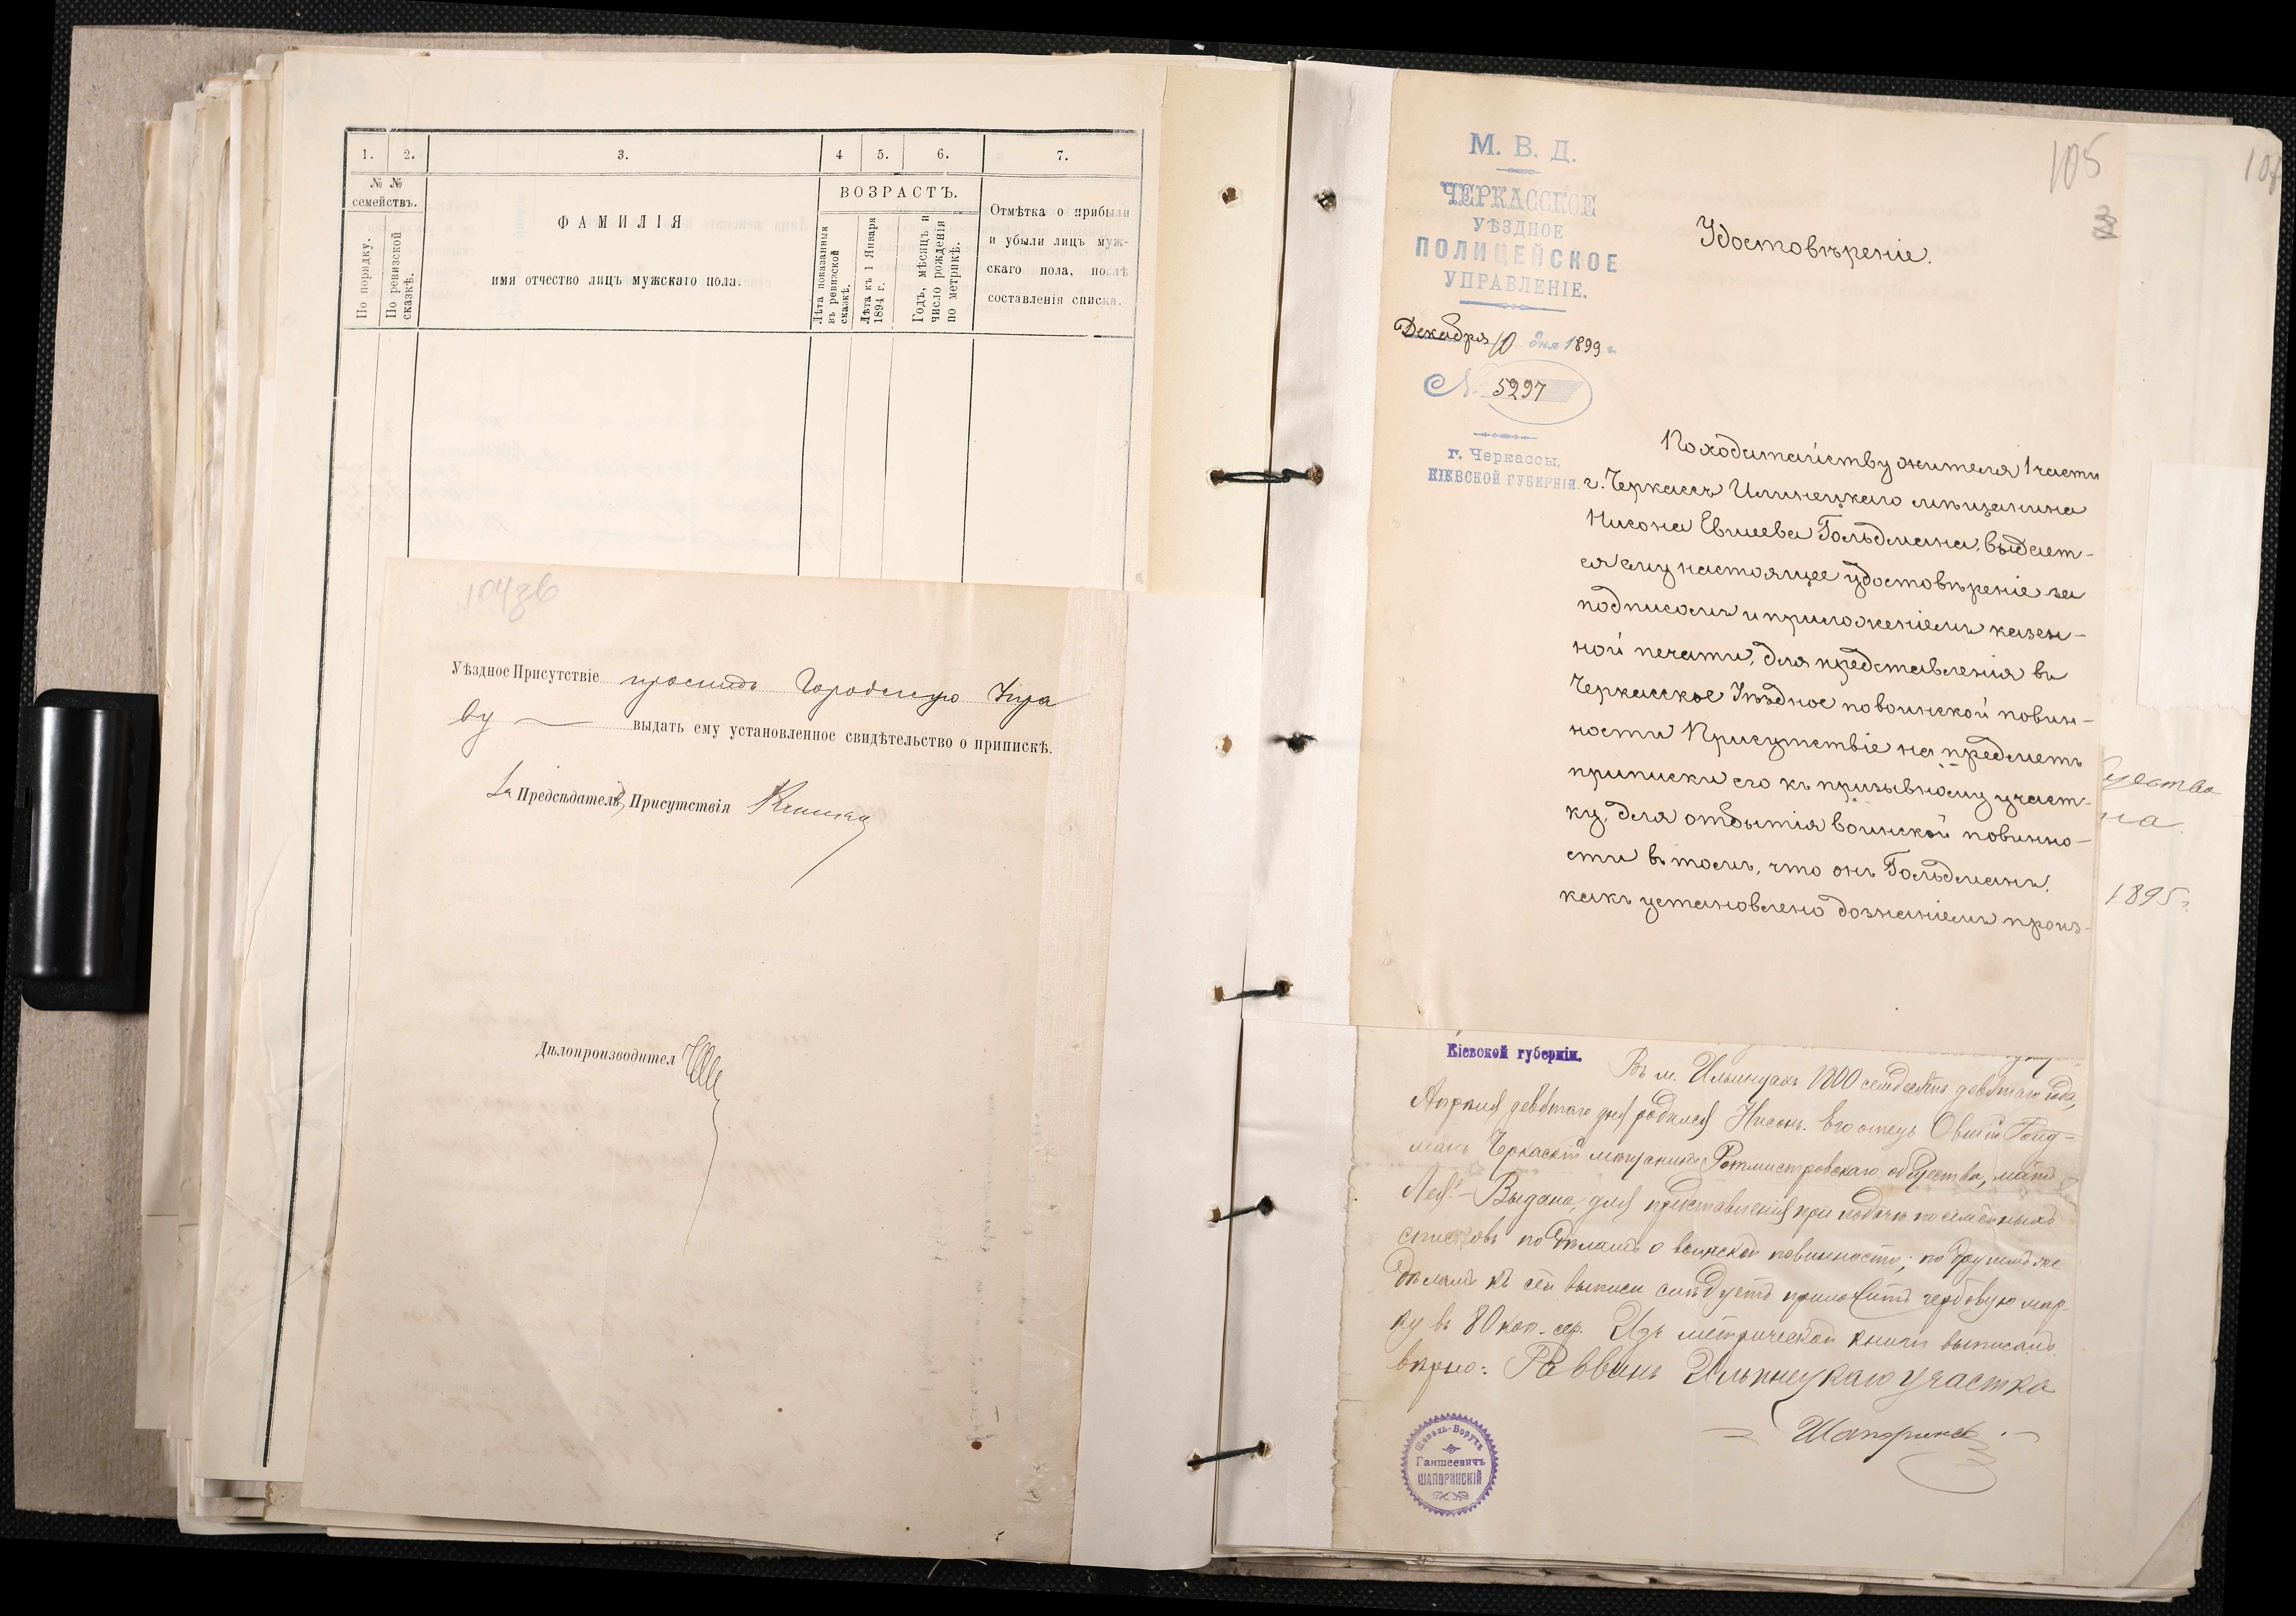 1. 2. 3. 4 5. 6. 7.
№ №
семействъ.
По порядку.
По ревизской
сказкѣ.
ФАМИЛІЯ
имя отчество лицъ мужскаго пола.
ВОЗРАСТЪ.
Лѣта показанныя
въ ревизской
сказкѣ.
Лѣта къ 1 Января
1894 г.
Годъ, мѣсяцъ и
число рожденія
по метрикѣ.
Отмѣтка о прибыли
и убыли лицъ муж-
скаго пола, послѣ
составленія списка.
104зв
Уѣздное Присутствіе проситъ Городскую Упра
ву выдать ему установленное свидѣтельство о припискѣ.
За Предсѣдателя Присутствія
Дѣлопроизводител
105
М. В. Д.
ЧЕРКАССКОЕ
УѢЗДНОЕ
ПОЛИЦЕЙСКОЕ
УПРАВЛЕНІЕ.
Декабря 10 дня 1899 г.
№ 5297
г. Черкассы,
КІЕВСКОЙ ГУБЕРНІИ.
Удостовѣреніе.
По ходатайству жителя 1 части
г. Черкассъ Илинецкаго мѣщанина
Нисона Евшеева Гольдмана, выдает-
ся ему настоящее удостовѣреніе за
подписомъ и приложеніемъ казен-
ной печати, для представленія въ
Черкасское Уѣздное по воинской повин-
ности Присутствіе на предметъ
приписки его къ призывному участ-
ку, для отбытія воинской повинно-
сти въ томъ, что онъ Гольдманъ,
какъ установлено дознаніемъ произ-
щества
на
1895 г.
Кіевской губерніи.
Въ м. Ильинцахъ 1800 семдесятъ девятаго года,
Апрѣля девятаго дня родился Нисонъ. Его отецъ Овшій Голд-
манъ Черкаскій мѣщанинъ Ротмистровскаго общества, мать
Лея. – Выдана, для представленія при подачи посемейныхъ
списковъ по дѣламъ о воинской повинности; по другимъ же
дѣламъ къ сей выписи слѣдуетъ приложить гербовую мар-
ку въ 80 коп. сер. Изъ метрической книги выписалъ
вѣрно: Раввинъ Ильинецкаго участка
Шапоринскій
Шевель-Борухъ
Гамшеевичъ
ШАПОРИНСКІЙ